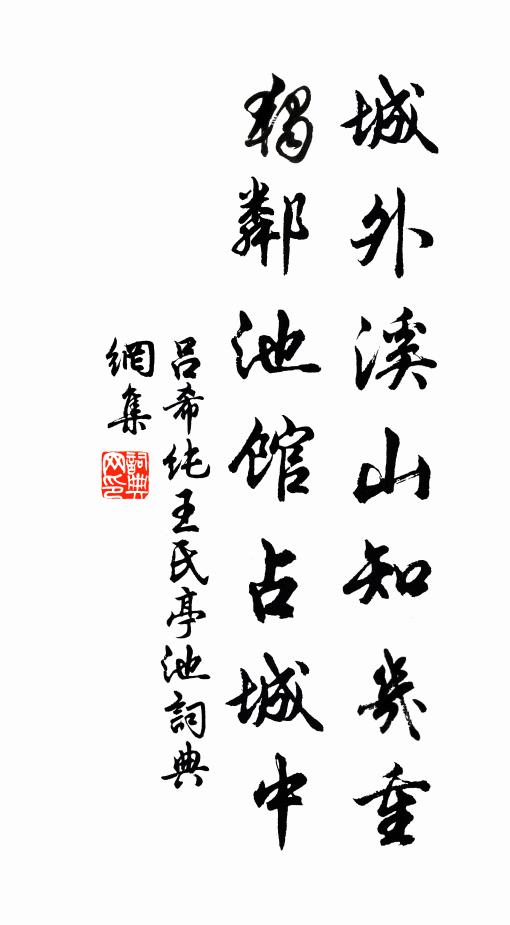 城外溪山知幾重
獨鄰池館占城中
呂希純王氏亭池詞典
網集
詞典網印